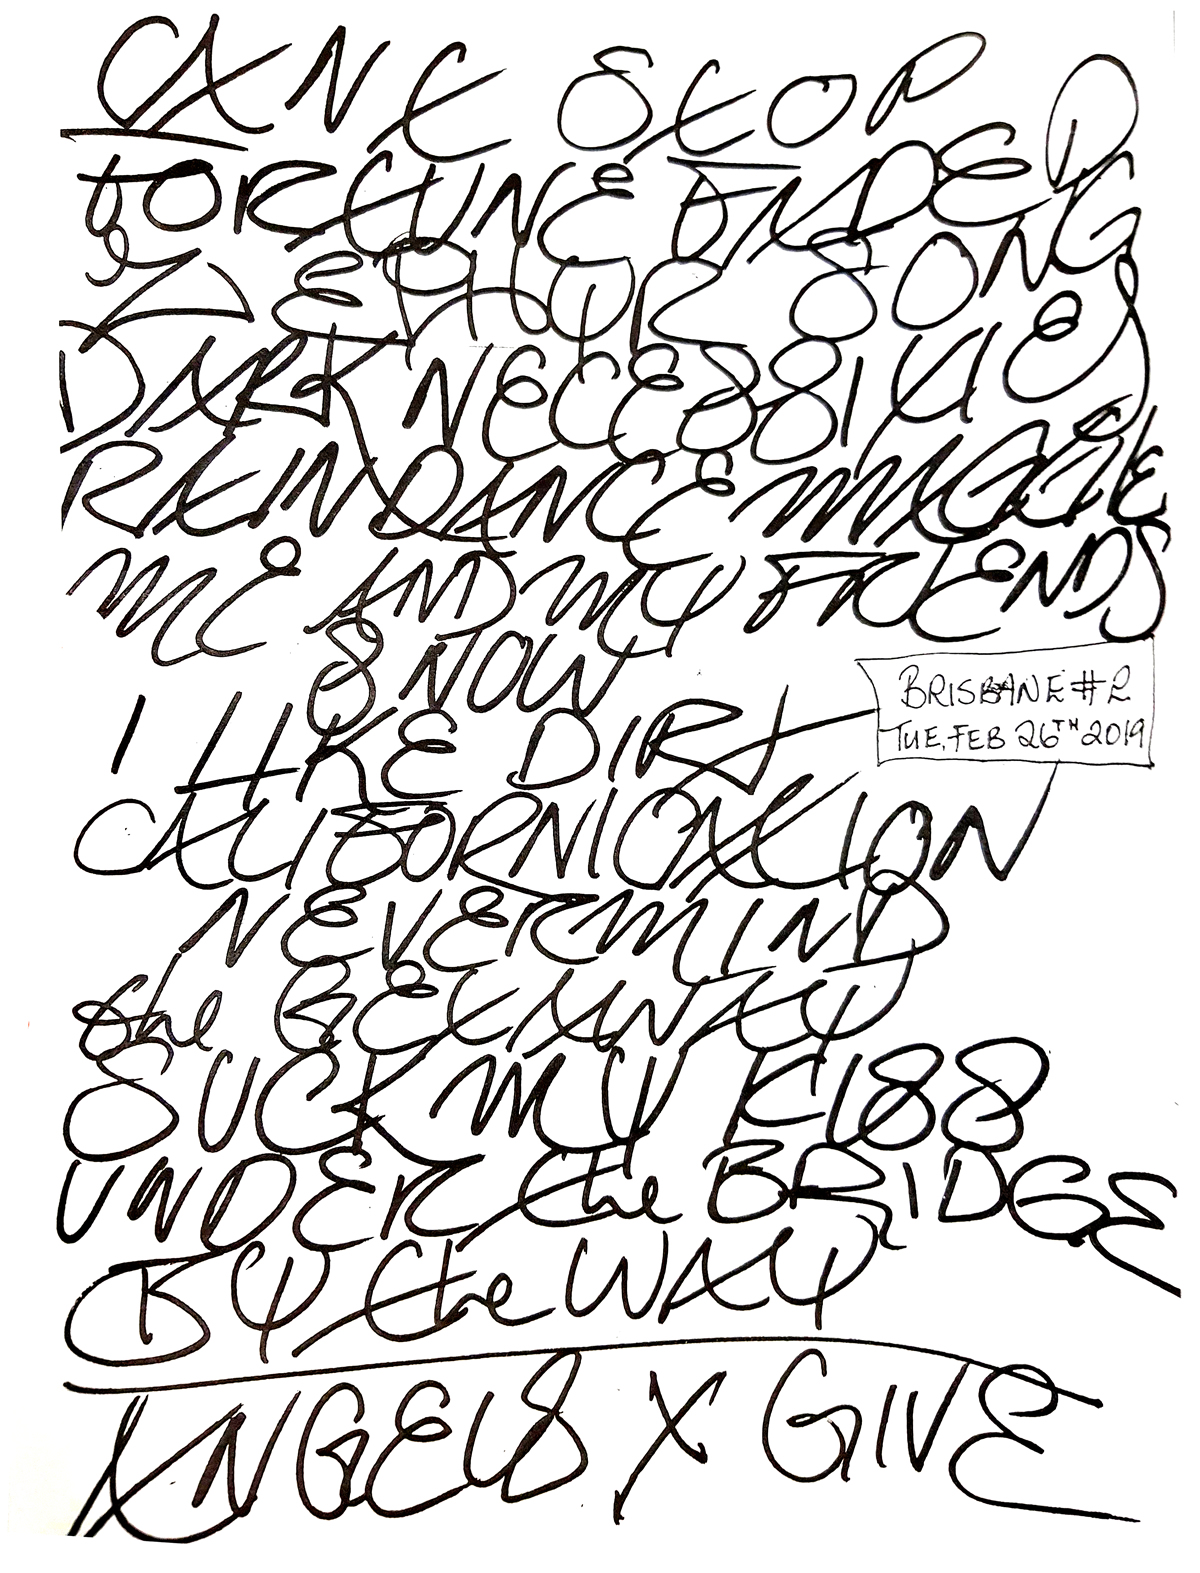 CAN'T STOP
FORTUNE FADED
ZEPHYR SONG
DARK NECESSITIES
RAIN DANCE MAGGIE
ME AND MY FRIENDS
SNOW
BRISBANE #2
TUE, FEB 26TH 2019
I LIKE DIRT
CALIFORNICATION
NEVERMIND
the GETAWAY
SUCK MY KISS
UNDER the BRIDGE
BY the WAY
ANGELS X GIVE